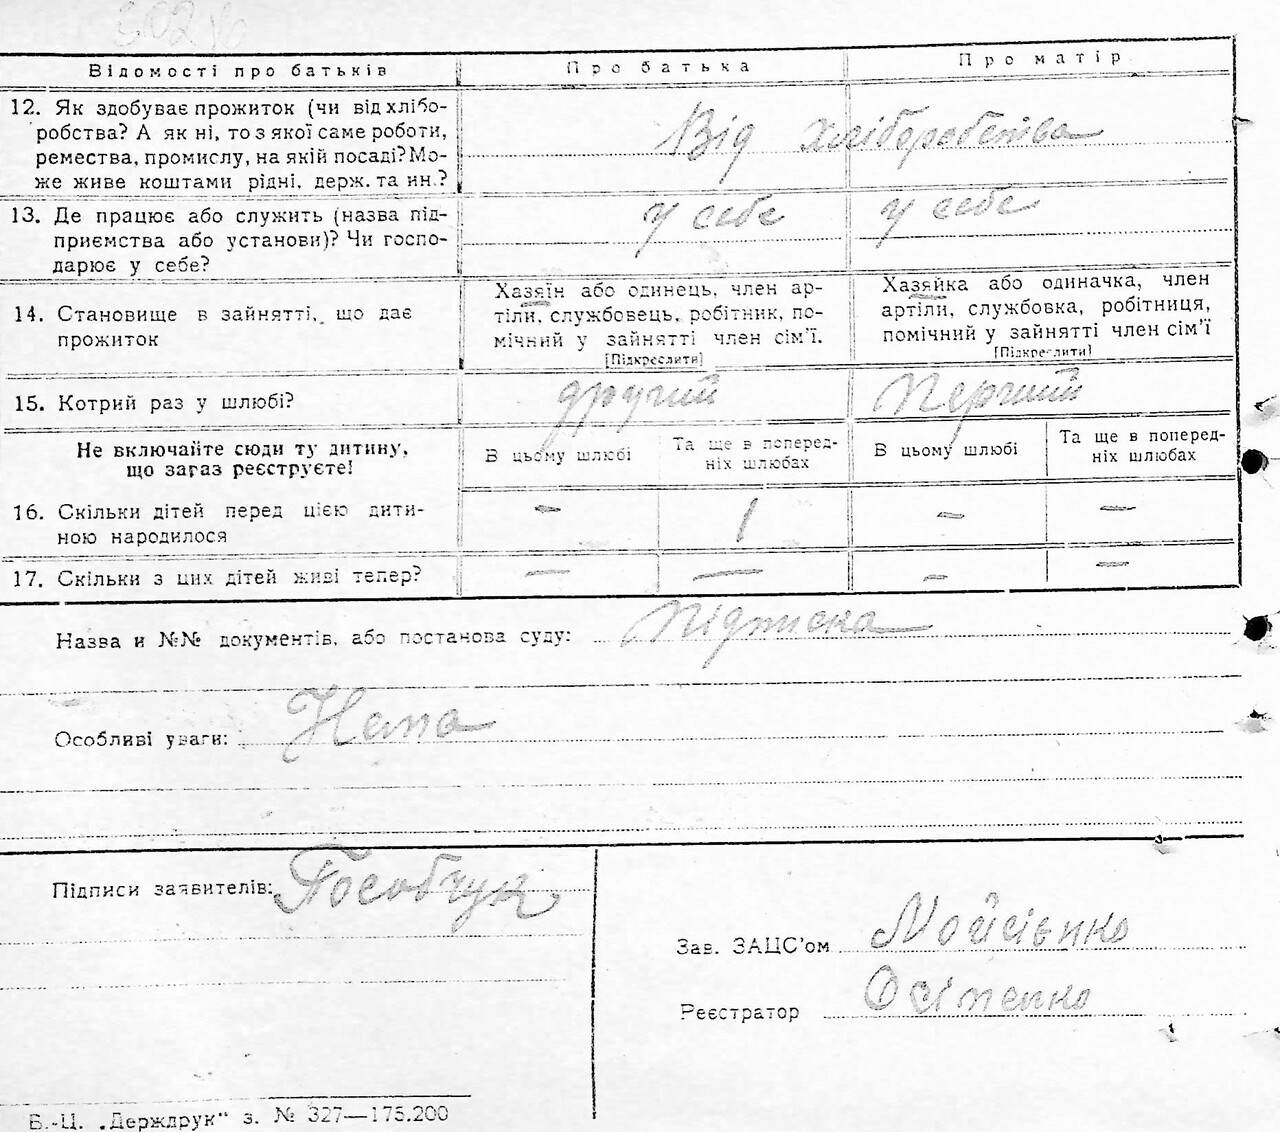 Відомості про батьків Про батька Про матір
12. Як здобуває прожиток (чи від хлібо-
робства? А як ні, то з якої саме роботи,
ремества, промислу, на якій посаді? Мо-
же живе коштами рідні, держ. та ин.?
Від хліборобства
13. Де працює або служить (назва під-
приємства або установи)? Чи госпо-
дарює у себе?
у себе у себе
14. Становище в зайнятті, що дає
прожиток
Хазяїн або одинець, член ар-
тіли, службовець, робітник, по-
мічний у зайнятті член сім’ї.
[Підкреслити]
Хазяйка або одиначка, член
артіли, службовка, робітниця,
помічний у зайнятті член сім’ї
[Підкреслити]
15. Котрий раз у шлюбі? другий перший
Не включайте сюди ту дитину,
що зараз реєструєте!
В цьому шлюбі
Та ще в поперед-
ніх шлюбах
В цьому шлюбі
Та ще в поперед-
ніх шлюбах
16. Скільки дітей перед цією дити-
ною народилося
— 1 — —
17. Скільки з цих дітей живі тепер? — — — —
Назва и №№ документів, або постанова суду: Підписка
Особливі уваги: Нема
Підписи заявителів: Пособчук
Зав. ЗАЦС’ом Мойсієнко
Реєстратор Осіпенко
Б.-Ц. „Держдрук“ з. № 327—175.200